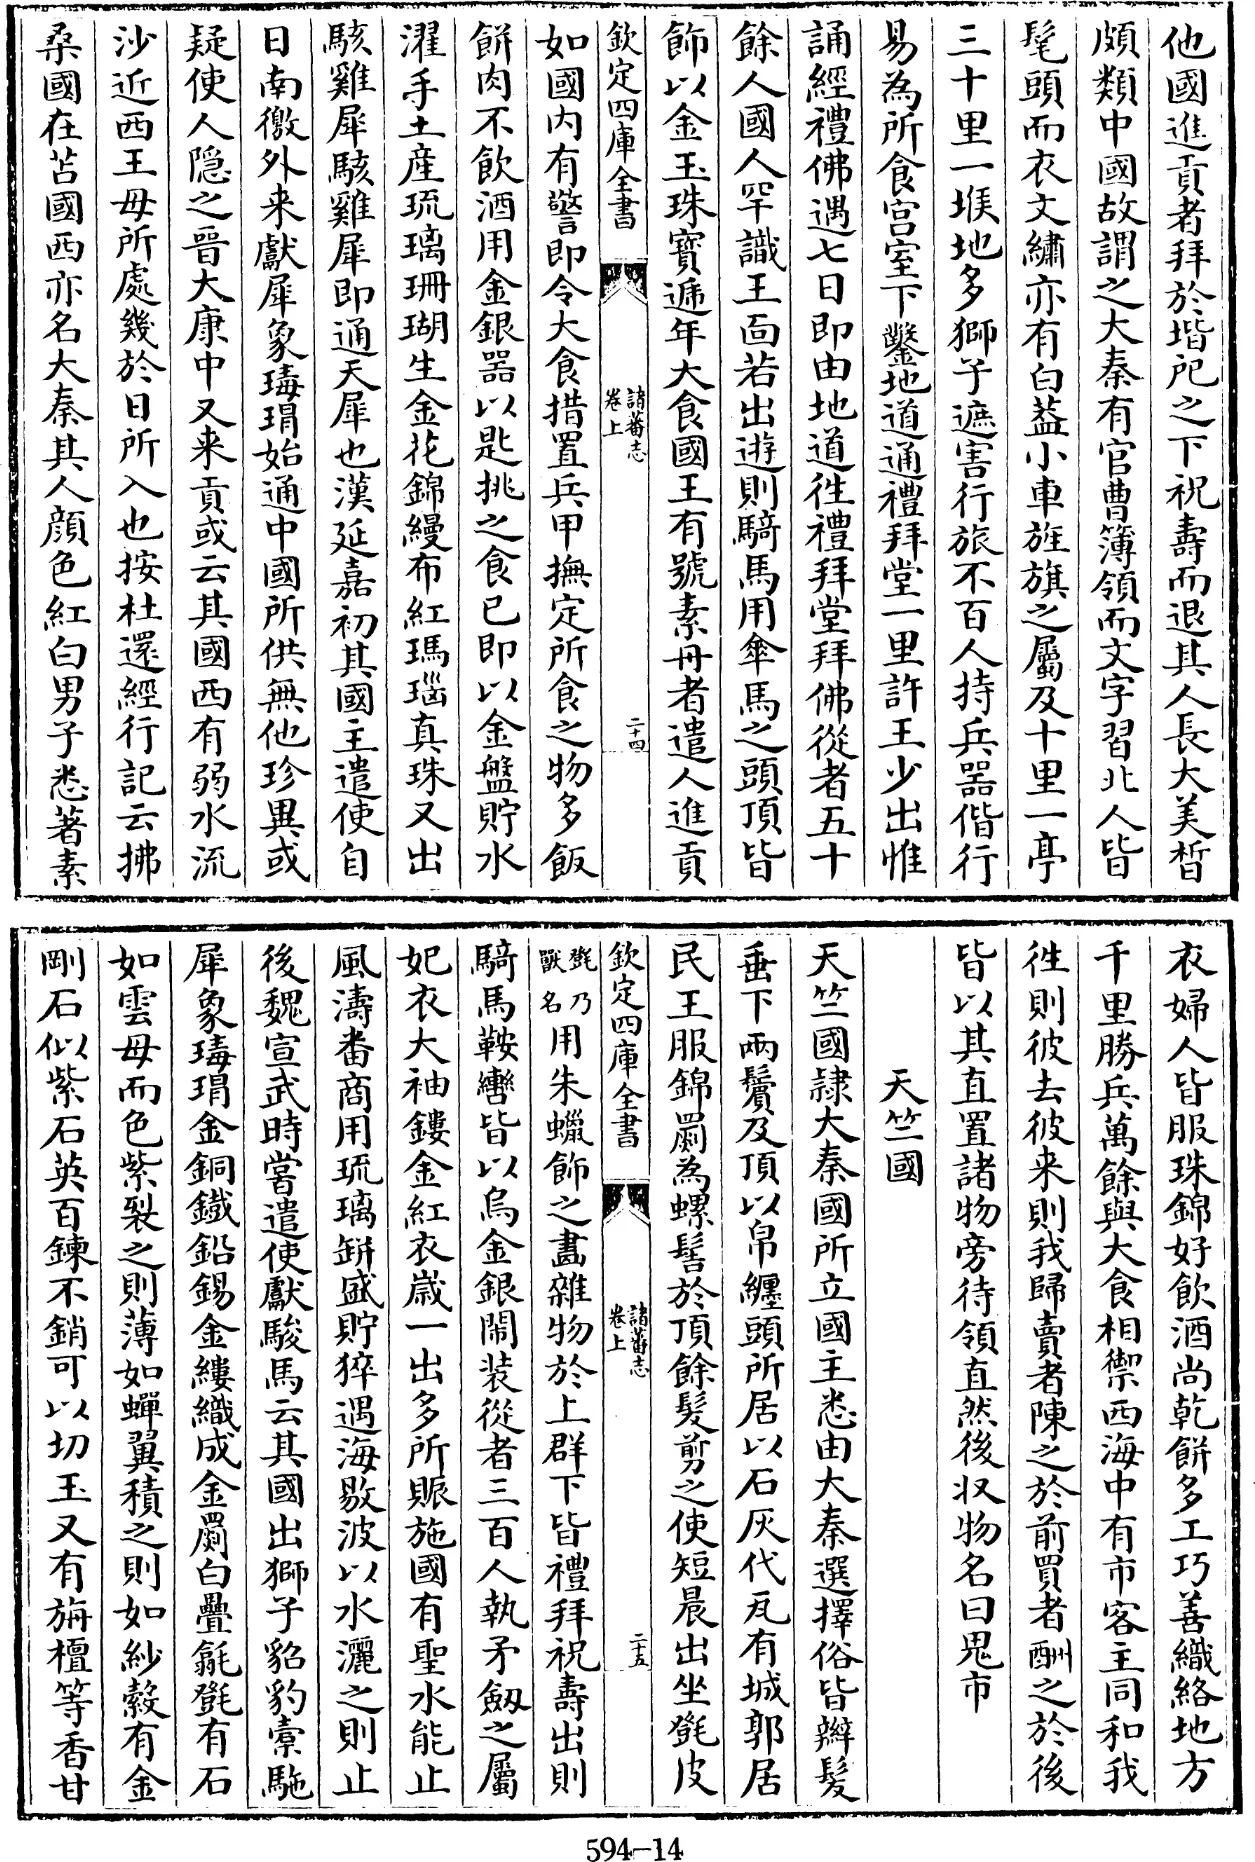 他國進貢者拜於堦戺之下祝壽而退其人長大美晳
頗類中國故謂之大秦有官曹簿領而文字習北人皆
髦頭而衣文繡亦有白葢小車旌旗之屬及十里一亭
三十里一堠地多獅子遮害行旅不百人持兵器偕行
易為所食宫室下鑿地道通禮拜堂一里許王少出惟
誦經禮佛遇七日即由地道徃禮拜堂拜佛從者五十
餘人國人罕識王面若出遊則騎馬用傘馬之頭頂皆
飾以金玉珠寳遞年大食國王有號素丹者遣人進貢
欽定四庫全書
諸蕃志
卷上
二十四
如國内有警即令大食措置兵甲撫定所食之物多飯
餅肉不飲酒用金銀器以匙挑之食已即以金盤貯水
濯手土産琉璃珊瑚生金花錦縵布紅瑪瑙真珠又出
駭雞犀駭雞犀即通天犀也漢延嘉初其國主遣使自
日南徼外来獻犀象瑇瑁始通中國所供無他珍異或
疑使人隠之晉大康中又来貢或云其國西有弱水流
沙近西王母所處幾於日所入也按杜還經行記云拂
桑國在苫國西亦名大秦其人顔色紅白男子悉著素
衣婦人皆服珠錦好飲酒尚乾餅多工巧善織絡地方
千里勝兵萬餘與大食相禦西海中有市客主同和我
徃則彼去彼来則我歸賣者陳之於前買者酬之於後
皆以其直置諸物旁待領直然後収物名曰鬼市
天竺國
天竺國隷大秦國所立國主悉由大秦選擇俗皆辮髮
垂下兩鬢及頂以帛纒頭所居以石灰代瓦有城郭居
民王服錦罽為螺髻於頂餘髮剪之使短晨出坐㲪皮
欽定四庫全書
諸蕃志
卷上
二十五
㲪乃獸名用朱蠟飾之畵雜物於上群下皆禮拜祝壽出則
騎馬鞍轡皆以烏金銀閙装從者三百人執矛劔之屬
妃衣大袖鏤金紅衣歳一出多所賑施國有聖水能止
風濤番商用琉璃缾盛貯猝遇海敭波以水灑之則止
後魏宣武時嘗遣使獻駿馬云其國出獅子貂豹槖駞
犀象瑇瑁金銅鐵鉛錫金縷織成金罽白疊毹㲪有石
如雲母而色紫裂之則薄如蟬翼積之則如紗縠有金
剛石似紫石英百鍊不銷可以切玉又有旃檀等香甘
594-14